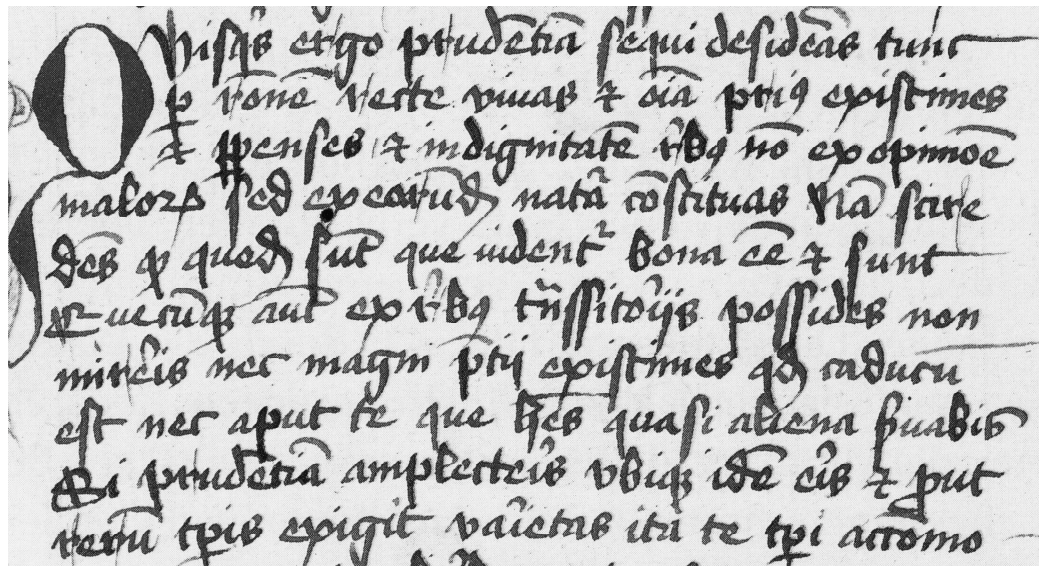 Quisq̃s ergo prudẽtiã sequi desideãs tunc
ꝑ rõnẽ recte viuas ⁊ oĩa priꝰ existimes
⁊ ꝑpenses ⁊ indignitatẽ rẽbꝫ nõ ex opinioẽ
maloꝝ sed ex eorũdẽ natã cõstituas Nã scire
dẽs ꝙ quedã sũt que uident᷑ bona eẽ ⁊ sunt
Quecũqꝫ aũt ex rẽbꝫ trãssitorijs possides non
mirẽis nec magni p̃tij existimes qđ caducũ
est nec aput te que hẽs quasi aliena ẜuabis
Si prudẽtiã amplectẽis vbiqꝫ idẽ eĩs ⁊ ꝓut
rerũ tꝑis exigit vaĩetas ita te tꝑi accõmo